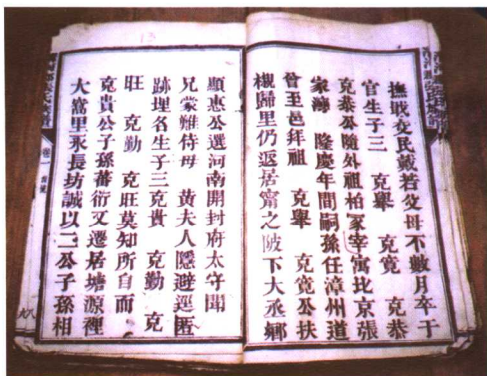 撫戢交民戴若父母不數月卒于
官生子三 克舉 克寬 克恭
克恭公隨外祖柏冢宰寓比京張
家灣 隆慶年間嗣孫任漳州道
曾至邑拜祖 克舉 克寬公扶
櫬歸里仍返居甯之陂下大丞鄉
顯惠公選河南開封府太守聞
兄蒙難侍母 黃夫人隱避逕匿
跡埋名生子三克貴 克勤 克
旺 克勤 克旺莫知所自而
克貴公子孫蕃衍文遷居塘源裡
大富里永長坊誠以二公子孫相
卷一